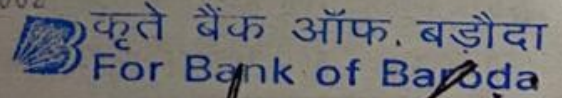 कृते बैंक ऑफ. बड़ौदा
For Bank of Baroda